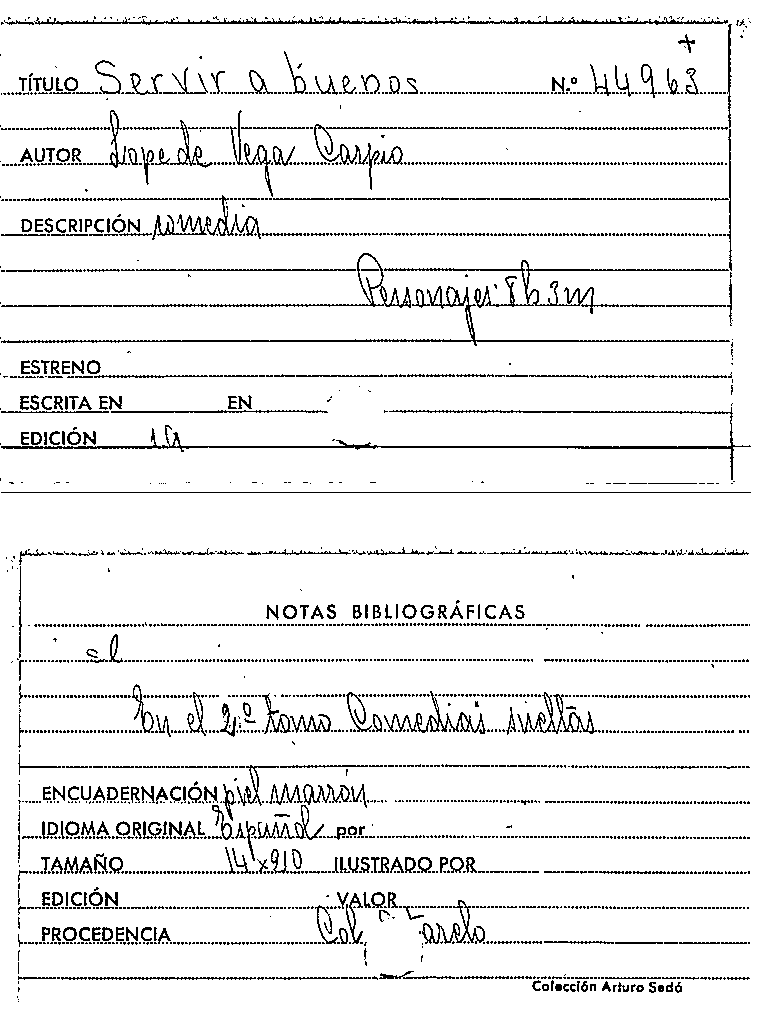 +
TÍTULO Servir a buenos N.º 44963
AUTOR Lope de Vega Carpio
DESCRIPCIÓN comedia
Personajes: 8h 3m
ESTRENO
ESCRITA EN EN
EDICIÓN 1a
NOTAS BIBLIOGRÁFICAS
En el 2º tomo Comedias sueltas
ENCUADERNACIÓN piel marrón
IDIOMA ORIGINAL Español por
TAMAÑO 14'x910 ILUSTRADO POR
EDICIÓN VALOR
PROCEDENCIA Col
Colección Arturo Sedó